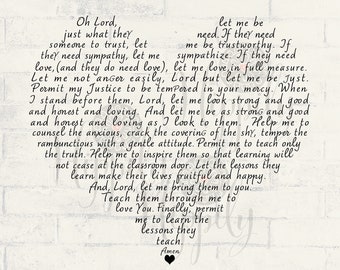 Oh Lord, let me be
just what they need. If they need
someone to trust, let me be trustworthy. If
they need sympathy, let me sympathize. If they need
love, (and they do need love), let me love in full measure.
Let me not anger easily, Lord but let me be just.
Permit my Justice to be tempered in your mercy. When
I stand before them, Lord, let me look strong and good
and honest and loving. And let me be as strong and good
and honest and loving as I look to them. Help me to
counsel the anxious, crack the covering of the shy, temper the
rambunctious with a gentle attitude. Permit me to teach only
the truth. Help me to inspire them so that learning will
not cease at the classroom door. Let the lessons they
learn make their lives fruitful and happy.
And, Lord, let me bring them to you.
Teach them through me to
love You. Finally, permit
me to learn the
lessons they
teach.
Amen